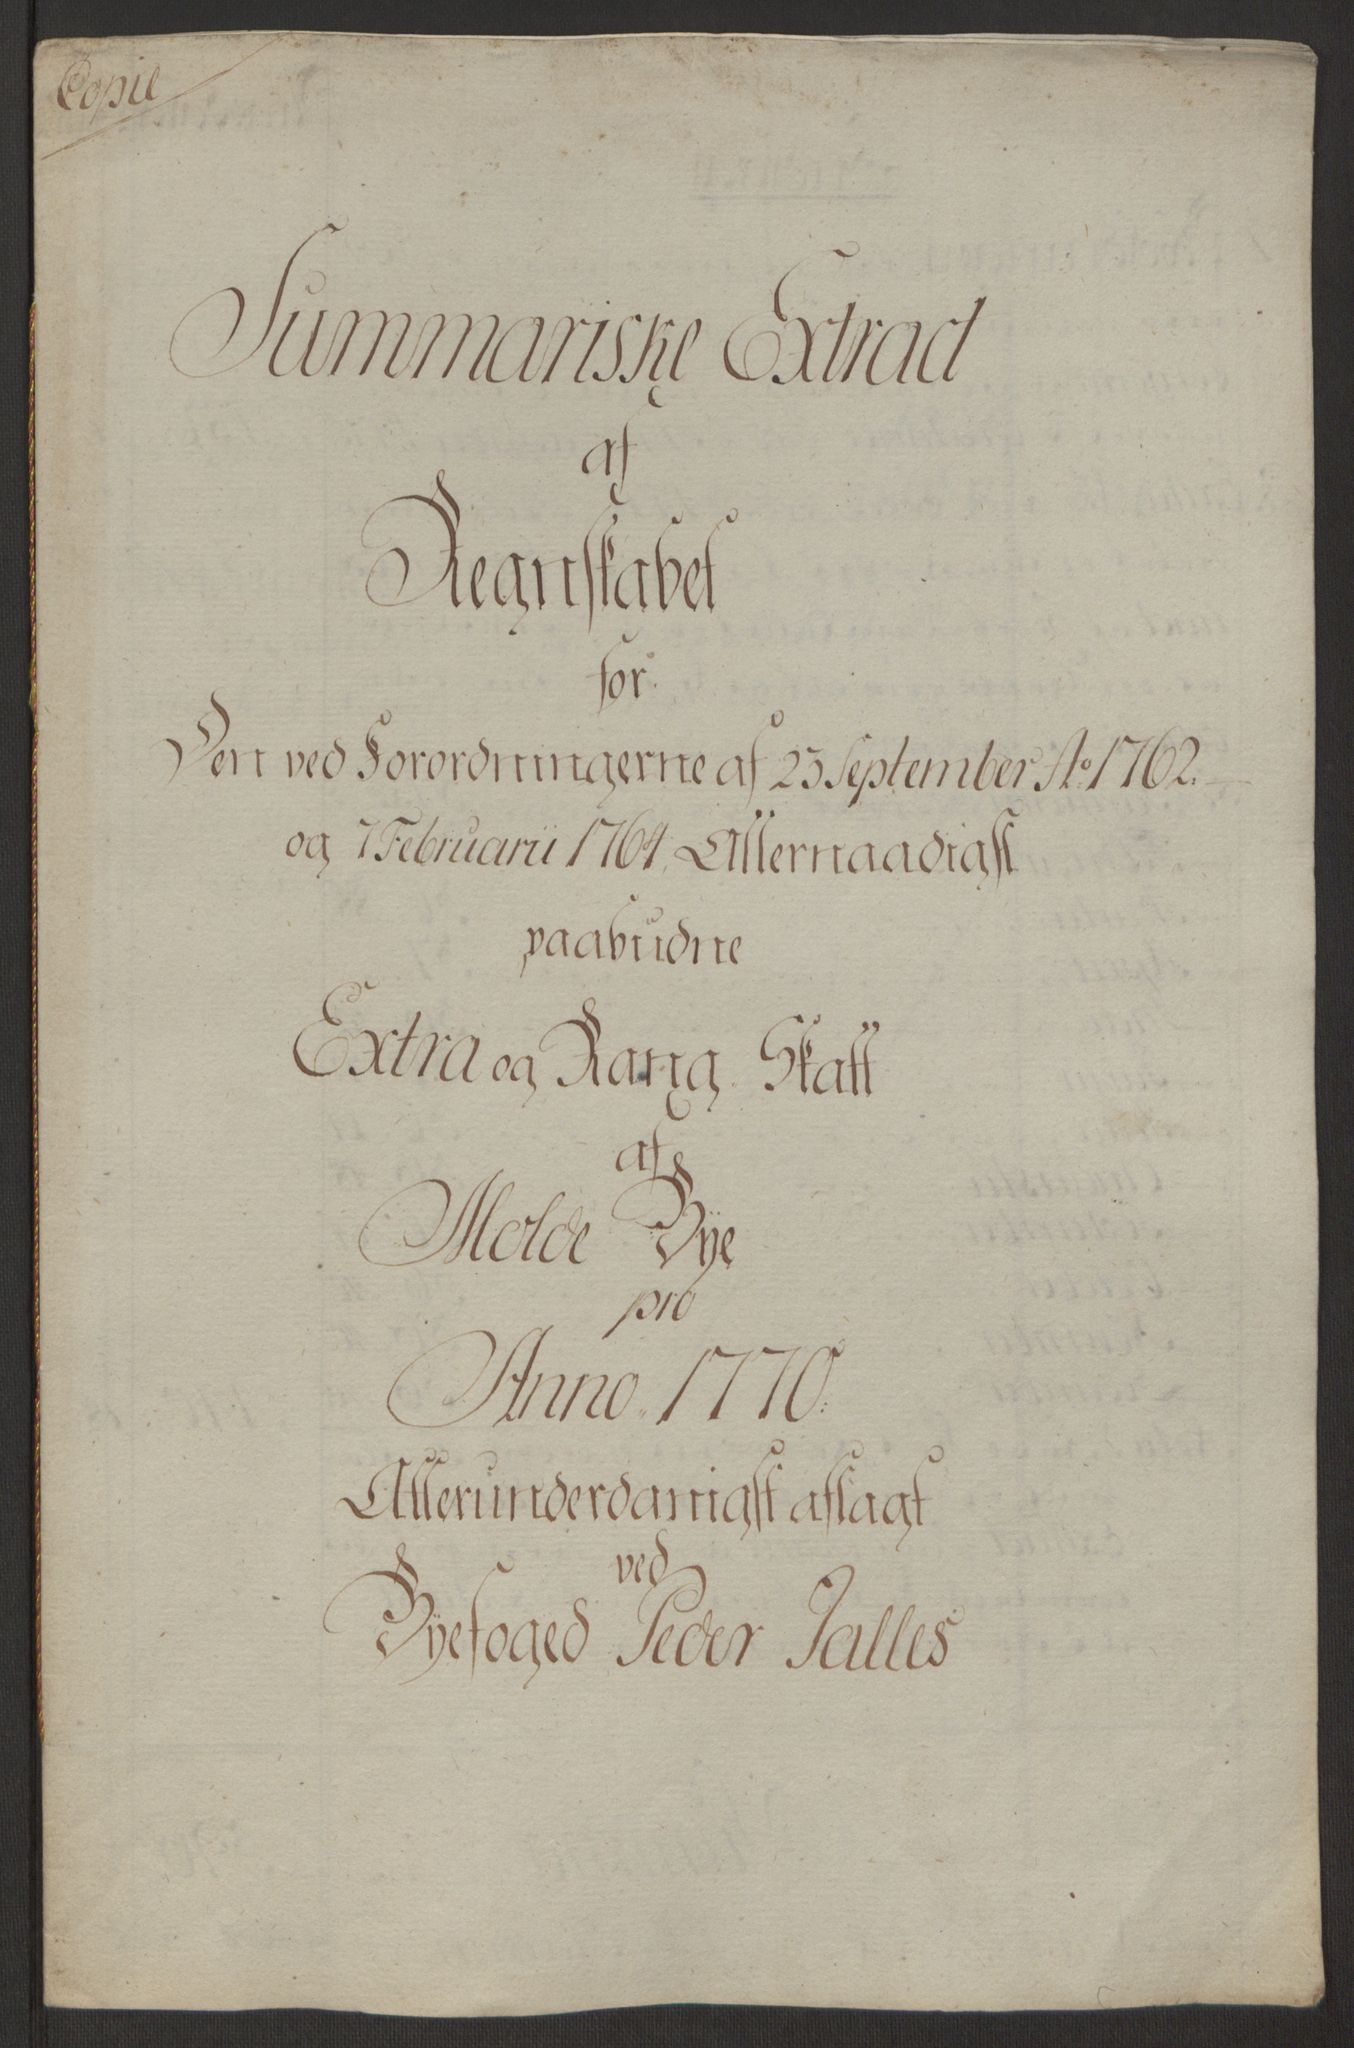 Copie
Summariske Extract
af
Regnskabet
for
Den ved Forordningerne af 23 September Ao. 1762.
og 7 Februarii 1764. Allernaadigst
paabudne
Extra og Rang Skatt
af
Molde Bÿe
pro
Anno. 1770.
Allerunderdanigst aflagt
ved
Bÿefoged Peder Jalles